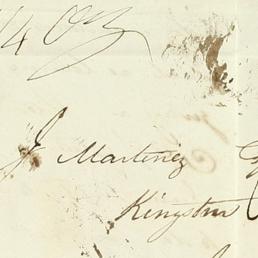 1/4 Oz
J Martinez Esq
Kingston